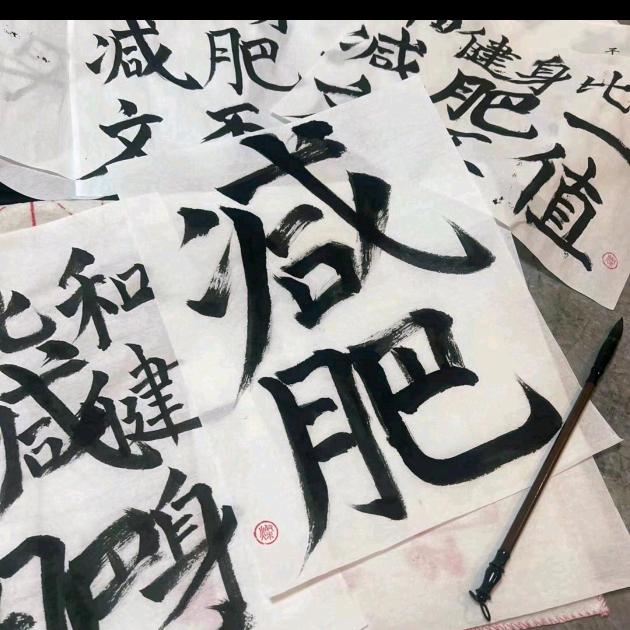 减肥
文不
减
健身比
肥一
值
减
肥
和
健
身
减
肥